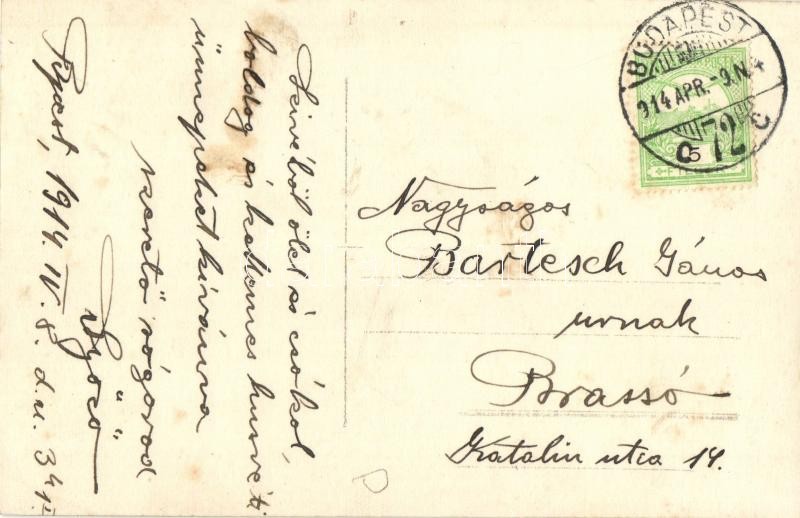 Szivéből ölel és csókol,
boldog és kellemes husvéti
ünnepeket kivánva
szerető sógorod
Győző
Bpest, 1914. IV. 8. d.u.
BUDAPEST
914 APR. -9. N. 4
72
C C
5
Nagyságos
Bartesch János
urnak
Brassó
Katalin utca 14.